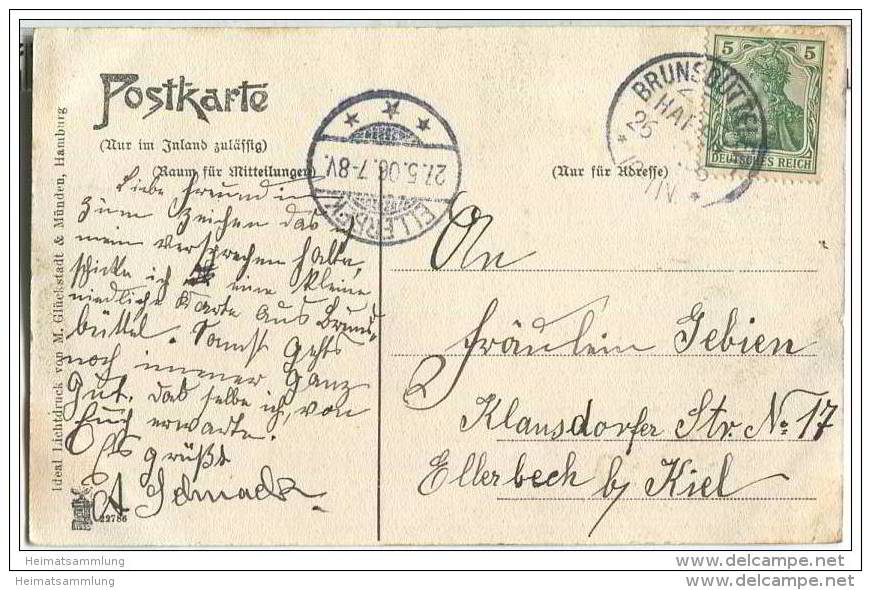 Postkarte
(Nur im Inland zulässig)
Raum für Mitteilungen)
(Nur für Adresse)
BRUNSBÜTTELE
HAF
26
5
5
DEUTSCHES REICH
27.5.06.7-8V.
ELLERBEK
Liebe Freundin
zum Zeichen das
mein versprechen halte,
schicke ich eine kleine
niedliche Karte aus Bruns-
büttel. Sonst gehts
noch immer ganz
gut, das selbe ich, von
Euch erwarte.
Es grüßt
A
An
Fräulein Gebien
Klausdorfer Str. No 17
Ellerbeck b/ Kiel
Ideal Lichtdruck von M. Glückstadt & Münden, Hamburg
22786
Heimatsammlung
Heimatsammlung
www.delcampe.net
www.delcampe.net